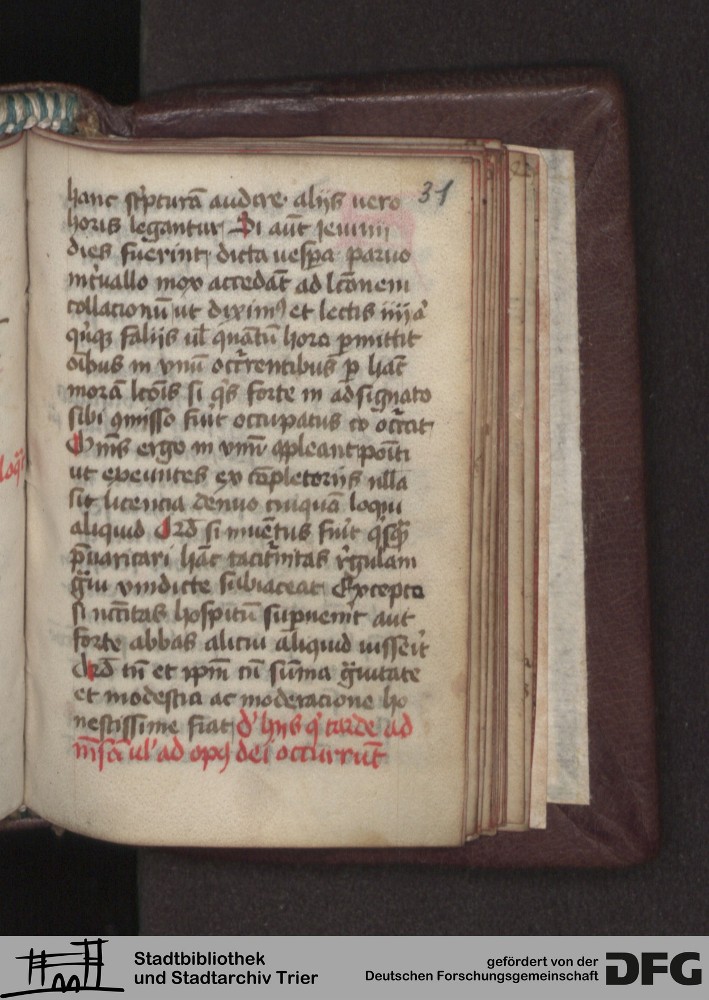 31
hanc sc̄pturā audire. aliis vero
horis legantur Si aūt ieiunij
dies fuerint, dicta vesp̄a paruo
int̄uallo mox accedāt ad lc̄onem
collacionū ut diximꝰ et lectis iiijor
qn̄qꝫ foliis ul̄ quātū hora ꝑmittit
oībus in vnū occ̄rentibus ꝑ hāc
morā lc̄ois si q̄s forte in adsignato
sibi ꝯmisso fuit occupatus
Om̄s ergo in vnū ꝯpleant poīti
ut exeuntes ex cōpletoriis nll̄a
sit licencia denuo cuiquā loqui
aliquid Qd̄ si inuētus fuit q̄sꝙ̄
p̄uaricari hāc taciturnitatis r̄gulam
ḡui vindicte subiaceat Excepta
si nc̄c̄itas hospitū supuen̄it aut
forte abbas alicui aliquid iusse̅it
Qd̄ tn̄ et ip̄m cū sūma ḡuitate
et modestia ac moderacione ho
nestissime fiat d' hijs q' tarde ad
mēsā ul' ad opꝰ dei occurrūt
loq̄
Stadtbibliothek
und Stadtarchiv Trier
gefördert von der
Deutschen Forschungsgemeinschaft
DFG